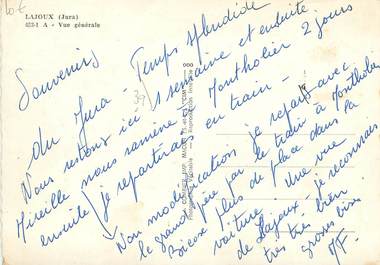 10€
LAJOUX (Jura)
423-1 A - Vue générale
Souvenirs
du Jura - Temps splendide
Nous restons ici 1 semaine et ensuite
Mireille nous ramène à Montholier 2 jours
ensuite je repartirais en train -
Non modification je repars avec
le grand père par le train à Montholier
Bisous plus de place dans la
voiture - Une vue
de Lajoux je reconnais
très très bien
gros bises
MF.